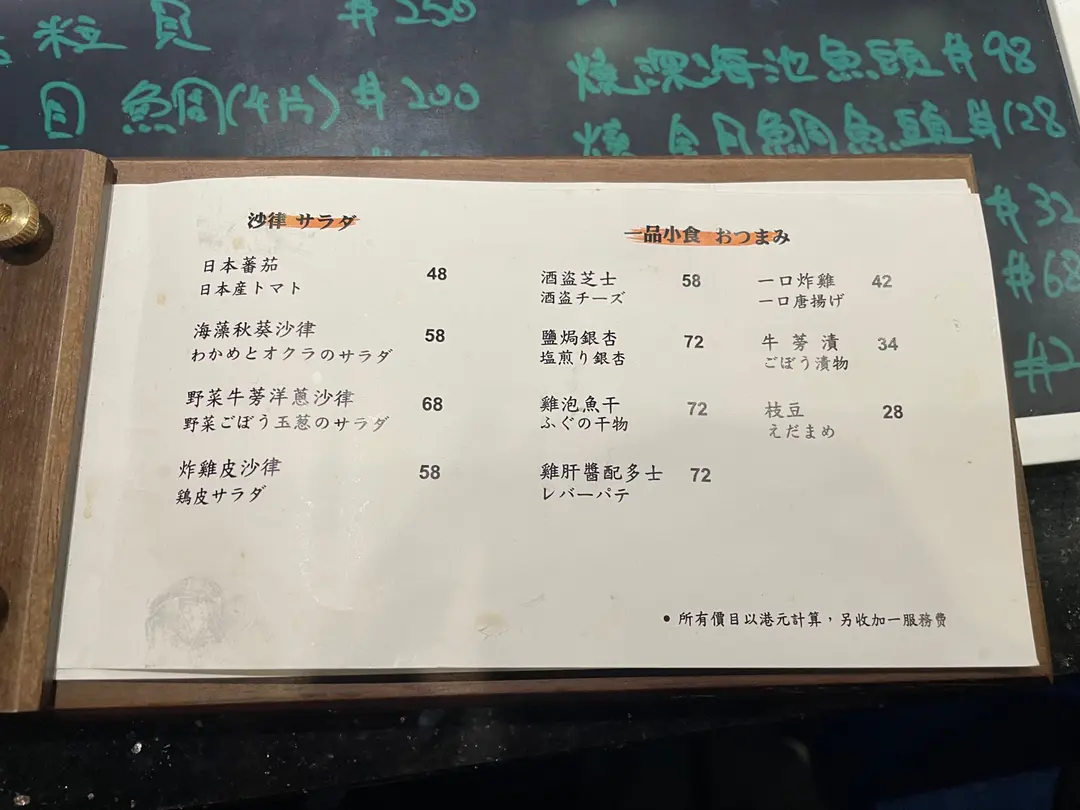 粒貝 #250
目魚周(4片) #200
燒深海池魚頭 #98
燒 魚頭 #128
#32
#68
沙律 サラダ
日本蕃茄 48
日本産トマト
海藻秋葵沙律 58
わかめとオクラのサラダ
野菜牛蒡洋蔥沙律 68
野菜ごぼう玉葱のサラダ
炸雞皮沙律 58
鶏皮サラダ
一品小食 おつまみ
酒盗芝士 58
酒盗チーズ
鹽焗銀杏 72
塩煎り銀杏
雞泡魚干 72
ふぐの干物
雞肝醬配多士 72
レバーパテ
一口炸雞 42
一口唐揚げ
牛蒡漬 34
ごぼう漬物
枝豆 28
えだまめ
• 所有價目以港元計算，另收加一服務費